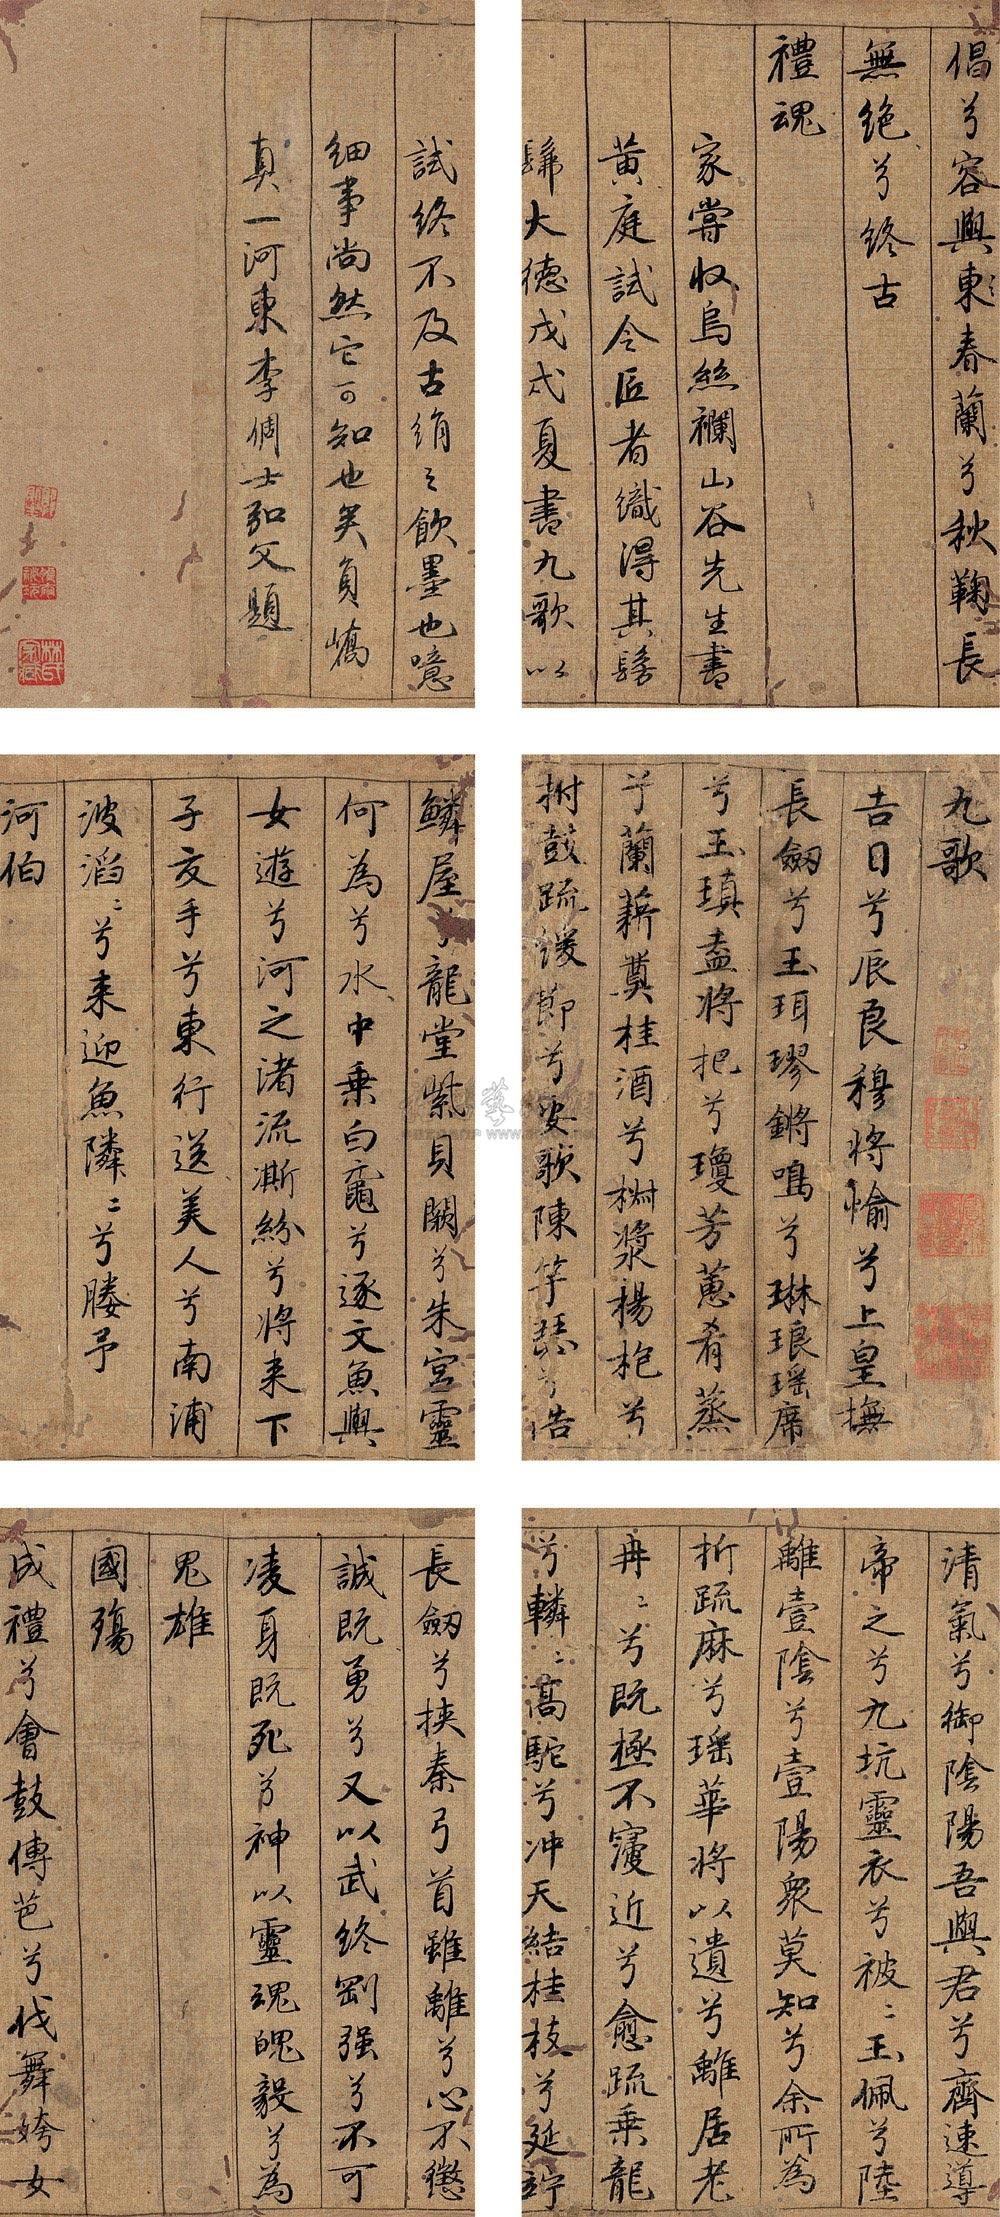 九歌
吉日兮辰良穆將愉兮上皇撫
長劍兮玉珥璆鏘鳴兮琳琅瑶席
兮玉瑱盍將把兮瓊芳蕙肴蒸
兮蘭藉奠桂酒兮椒漿楊枹兮
拊鼓疏緩節兮安歌陳竽瑟兮浩
清氣兮御陰陽吾與君兮齊速導
帝之兮九坑靈衣兮被〻玉佩兮陸
離壹陰兮壹陽衆莫知兮余所為
折疏麻兮瑶華將以遺兮離居老
冉〻兮既極不寖近兮愈疏乘龍
兮轔〻高駝兮冲天結桂枝兮延竚
鱗屋兮龍堂紫貝闕兮朱宮靈
何為兮水中乘白黿兮逐文魚與
女遊兮河之渚流澌紛兮將来下
子交手兮東行送美人兮南浦
波滔〻兮来迎魚隣〻兮媵予
河伯
長劍兮挾秦弓首雖離兮心不懲
誠既勇兮又以武終剛强兮不可
凌身既死兮神以靈魂魄毅兮為
鬼雄
國殤
成禮兮會鼓傳芭兮代舞姱女
倡兮容與東春蘭兮秋鞠長
無絶兮終古
禮魂
家嘗收烏絲襴山谷先生書
黄庭試令匠者織得其髣
髴大德戊戌夏書九歌以
試終不及古絹之飲墨也噫
細事尚然它可知也矣員嶠
真一河東李倜士弘父題